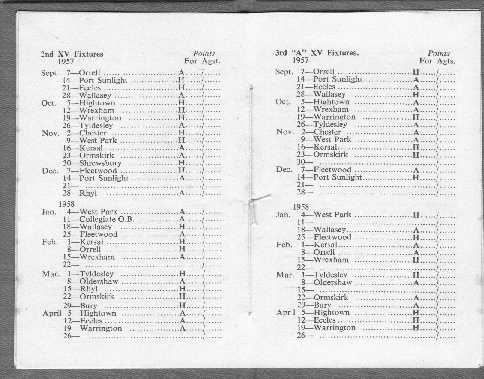 2nd XV Fixtures Points
1957 For Agst.
Sept. 7—Orrell A
14—Port Sunlight H
21—Eccles H
28—Wallasey A
Oct. 5—Hightown H
12—Wrexham H
19—Warrington H
26—Tyldesley A
Nov. 2—Chester H
9—West Park H
16—Kersal A
23—Ormskirk A
30—Shrewsbury H
Dec. 7—Fleetwood H
14—Port Sunlight A
21—
28—Rhyl A
1958
Jan. 4—West Park A
11—Collegiate O.B. A
18—Wallasey H
25—Fleetwood A
Feb. 1—Kersal H
8—Orrell H
15—Wrexham A
22—
Mar. 1—Tyldesley H
8—Oldershaw A
15—Rhyl H
22—Ormskirk H
29—Bury H
April 5—Hightown A
12—Eccles A
19—Warrington A
26—
3rd "A" XV Fixtures. Points
1957 For Agst.
Sept. 7—Orrell H
14—Port Sunlight A
21—Eccles A
28—Wallasey H
Oct. 5—Hightown A
12—Wrexham A
19—Warrington H
26—Tyldesley
Nov. 2—Chester A
9—West Park A
16—Kersal H
23—Ormskirk H
30—
Dec. 7—Fleetwood A
14—Port Sunlight H
21—
28—
1958
Jan. 4—West Park H
11—
18—Wallasey A
25—Fleetwood H
Feb. 1—Kersal A
8—Orrell A
15—Wrexham H
22—
Mar. 1—Tyldesley H
8—Oldershaw A
15—
22—Ormskirk A
29—Bury A
April 5—Hightown H
12—Eccles H
19—Warrington H
26—